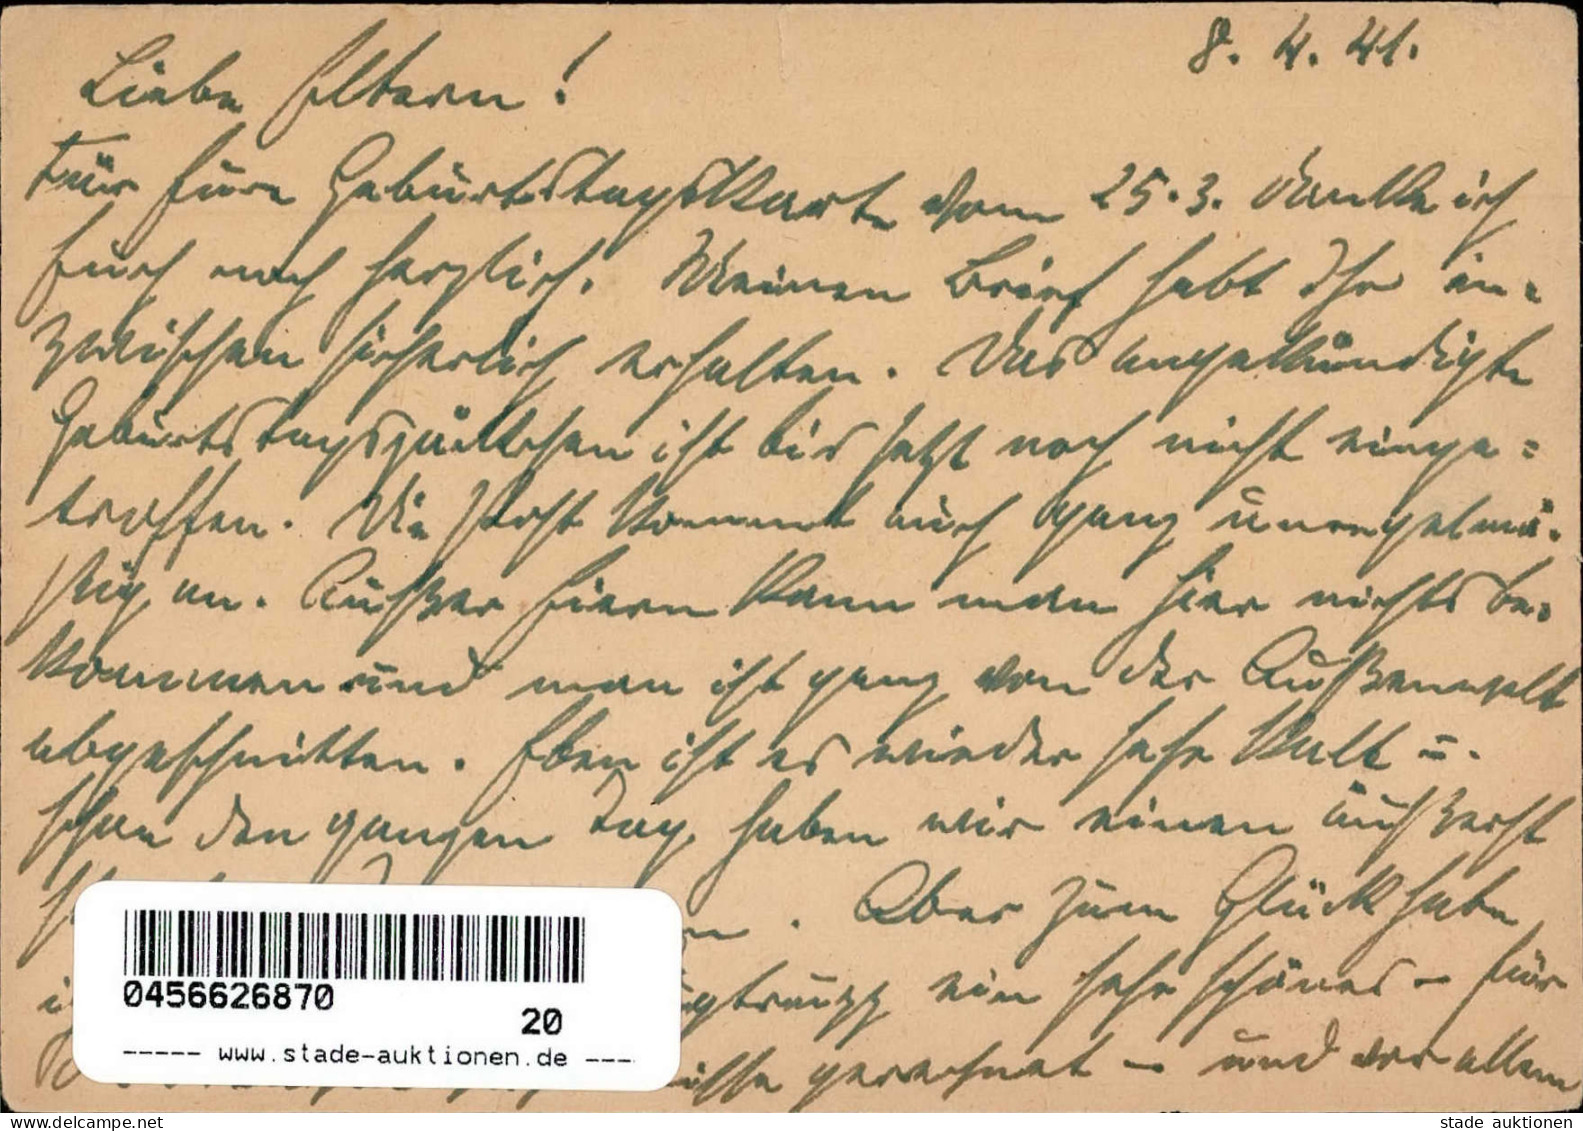 8. 4. 41.
Liebe Eltern!
Für Eure Geburtstagskarte vom 25.3. danke ich
Euch noch herzlich. Meinen Brief habt Ihr in=
zwischen sicherlich erhalten. Das angekündigte
Geburtstagspäckchen ist bis jetzt noch nicht einge=
troffen. Die Post kommt auch ganz unregelmä-
ßig an. Außer Eiern kann man hier nichts be-
kommen und man ist ganz von der Außenwelt
abgeschnitten. Eben ist es wieder sehr kalt u.
schon den ganzen Tag haben wir einen äußerst
. Aber zum Glück habe
ein sehr schönes - für
gerechnet - und vor allem
0456626870
20
----- www.stade-auktionen.de ---
stade auktionen